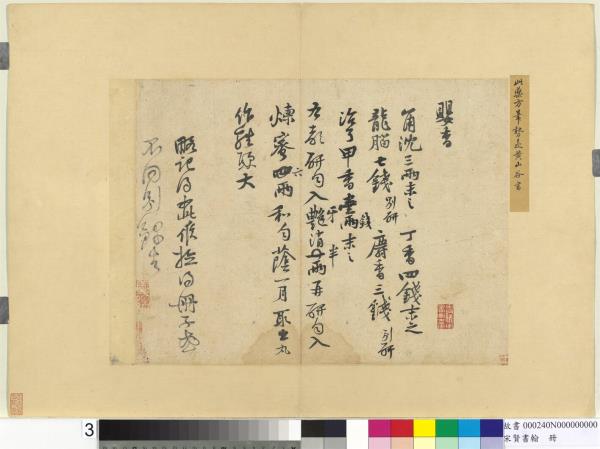 此藥方筆勢是黃山谷書
嬰香
角沈三兩末之 丁香四錢末之
龍腦七錢別研 麝香三錢別研
治了甲香壹兩錢末之
右都研勻入豔消半兩再研勻入
煉蜜四六兩和勻蔭一月取出丸
作雞頭大
略記得如此候檢得冊子
或不同別錄去
3
故書 000240N000000000
宋賢書翰 冊